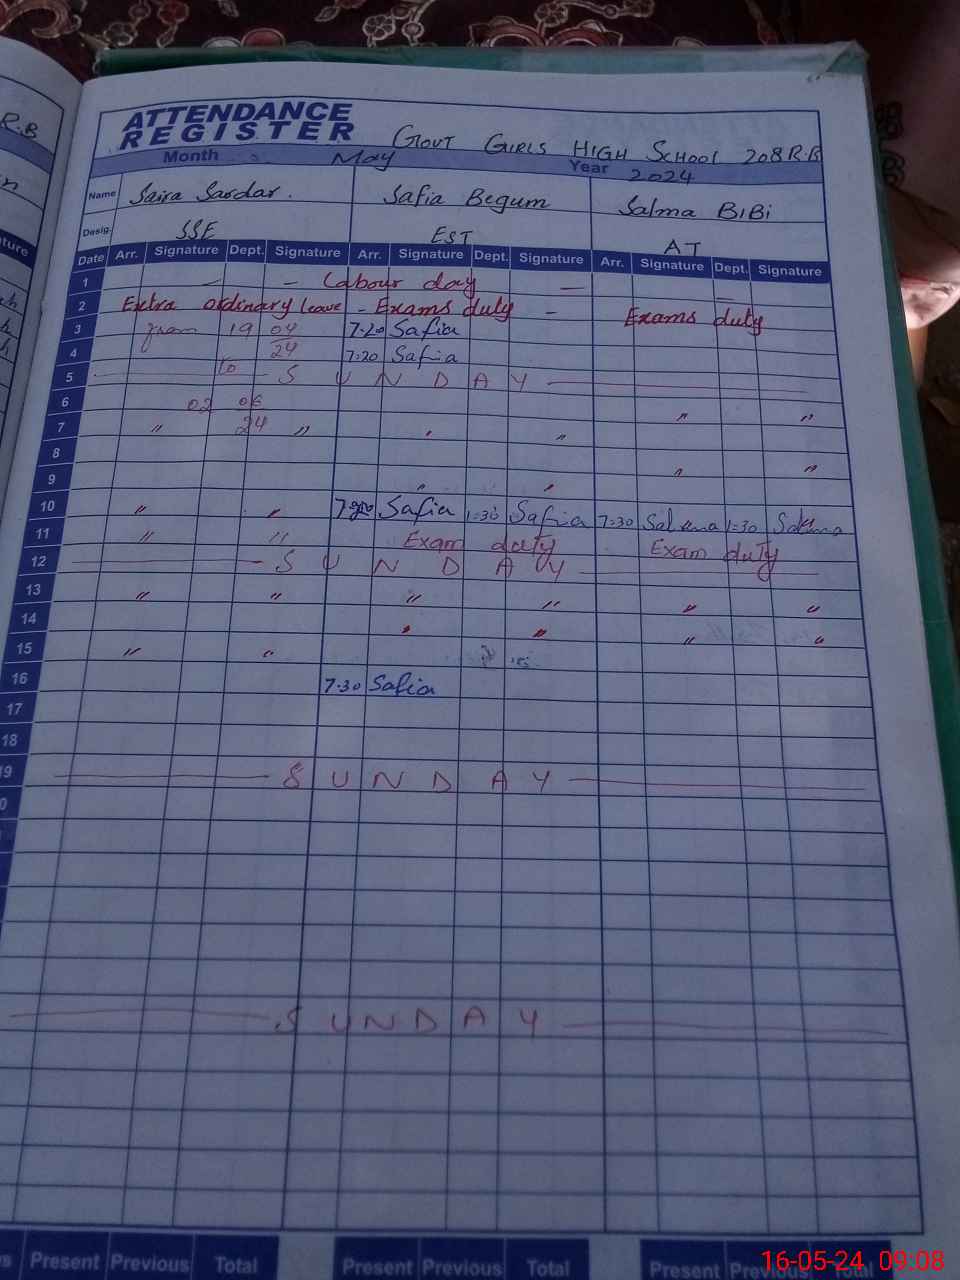 R.B
ATTENDANCE
REGISTER
GOVT GIRLS HIGH SCHOOL 208 R.B
Month May Year 2024
Name Saira Sardar. Safia Begum Salma BiBi
Desig. SSE EST AT
Date Arr. Signature Dept. Signature Arr. Signature Dept. Signature Arr. Signature Dept. Signature
1 — — Labour day — —
2 Extra ordinary leave - Exams duty - Exams duty
3 from 19 04 7:20 Safia
4 24 7:20 Safia
5 to S U N D A Y
6 02 06 " "
7 " 24 " " "
8 " "
9 " "
10 " " Safia 1:30 Safia 7:30 Salma 1:30 Salma
11 " " Exam duty Exam duty
12 S U N D A Y
13 " " " " " "
14 " " " "
15 " "
16 7:30 Safia
17
18
19 S U N D A Y
S U N D A Y
Present Previous Total Present Previous Total Present Previous Total
16-05-24 09:08